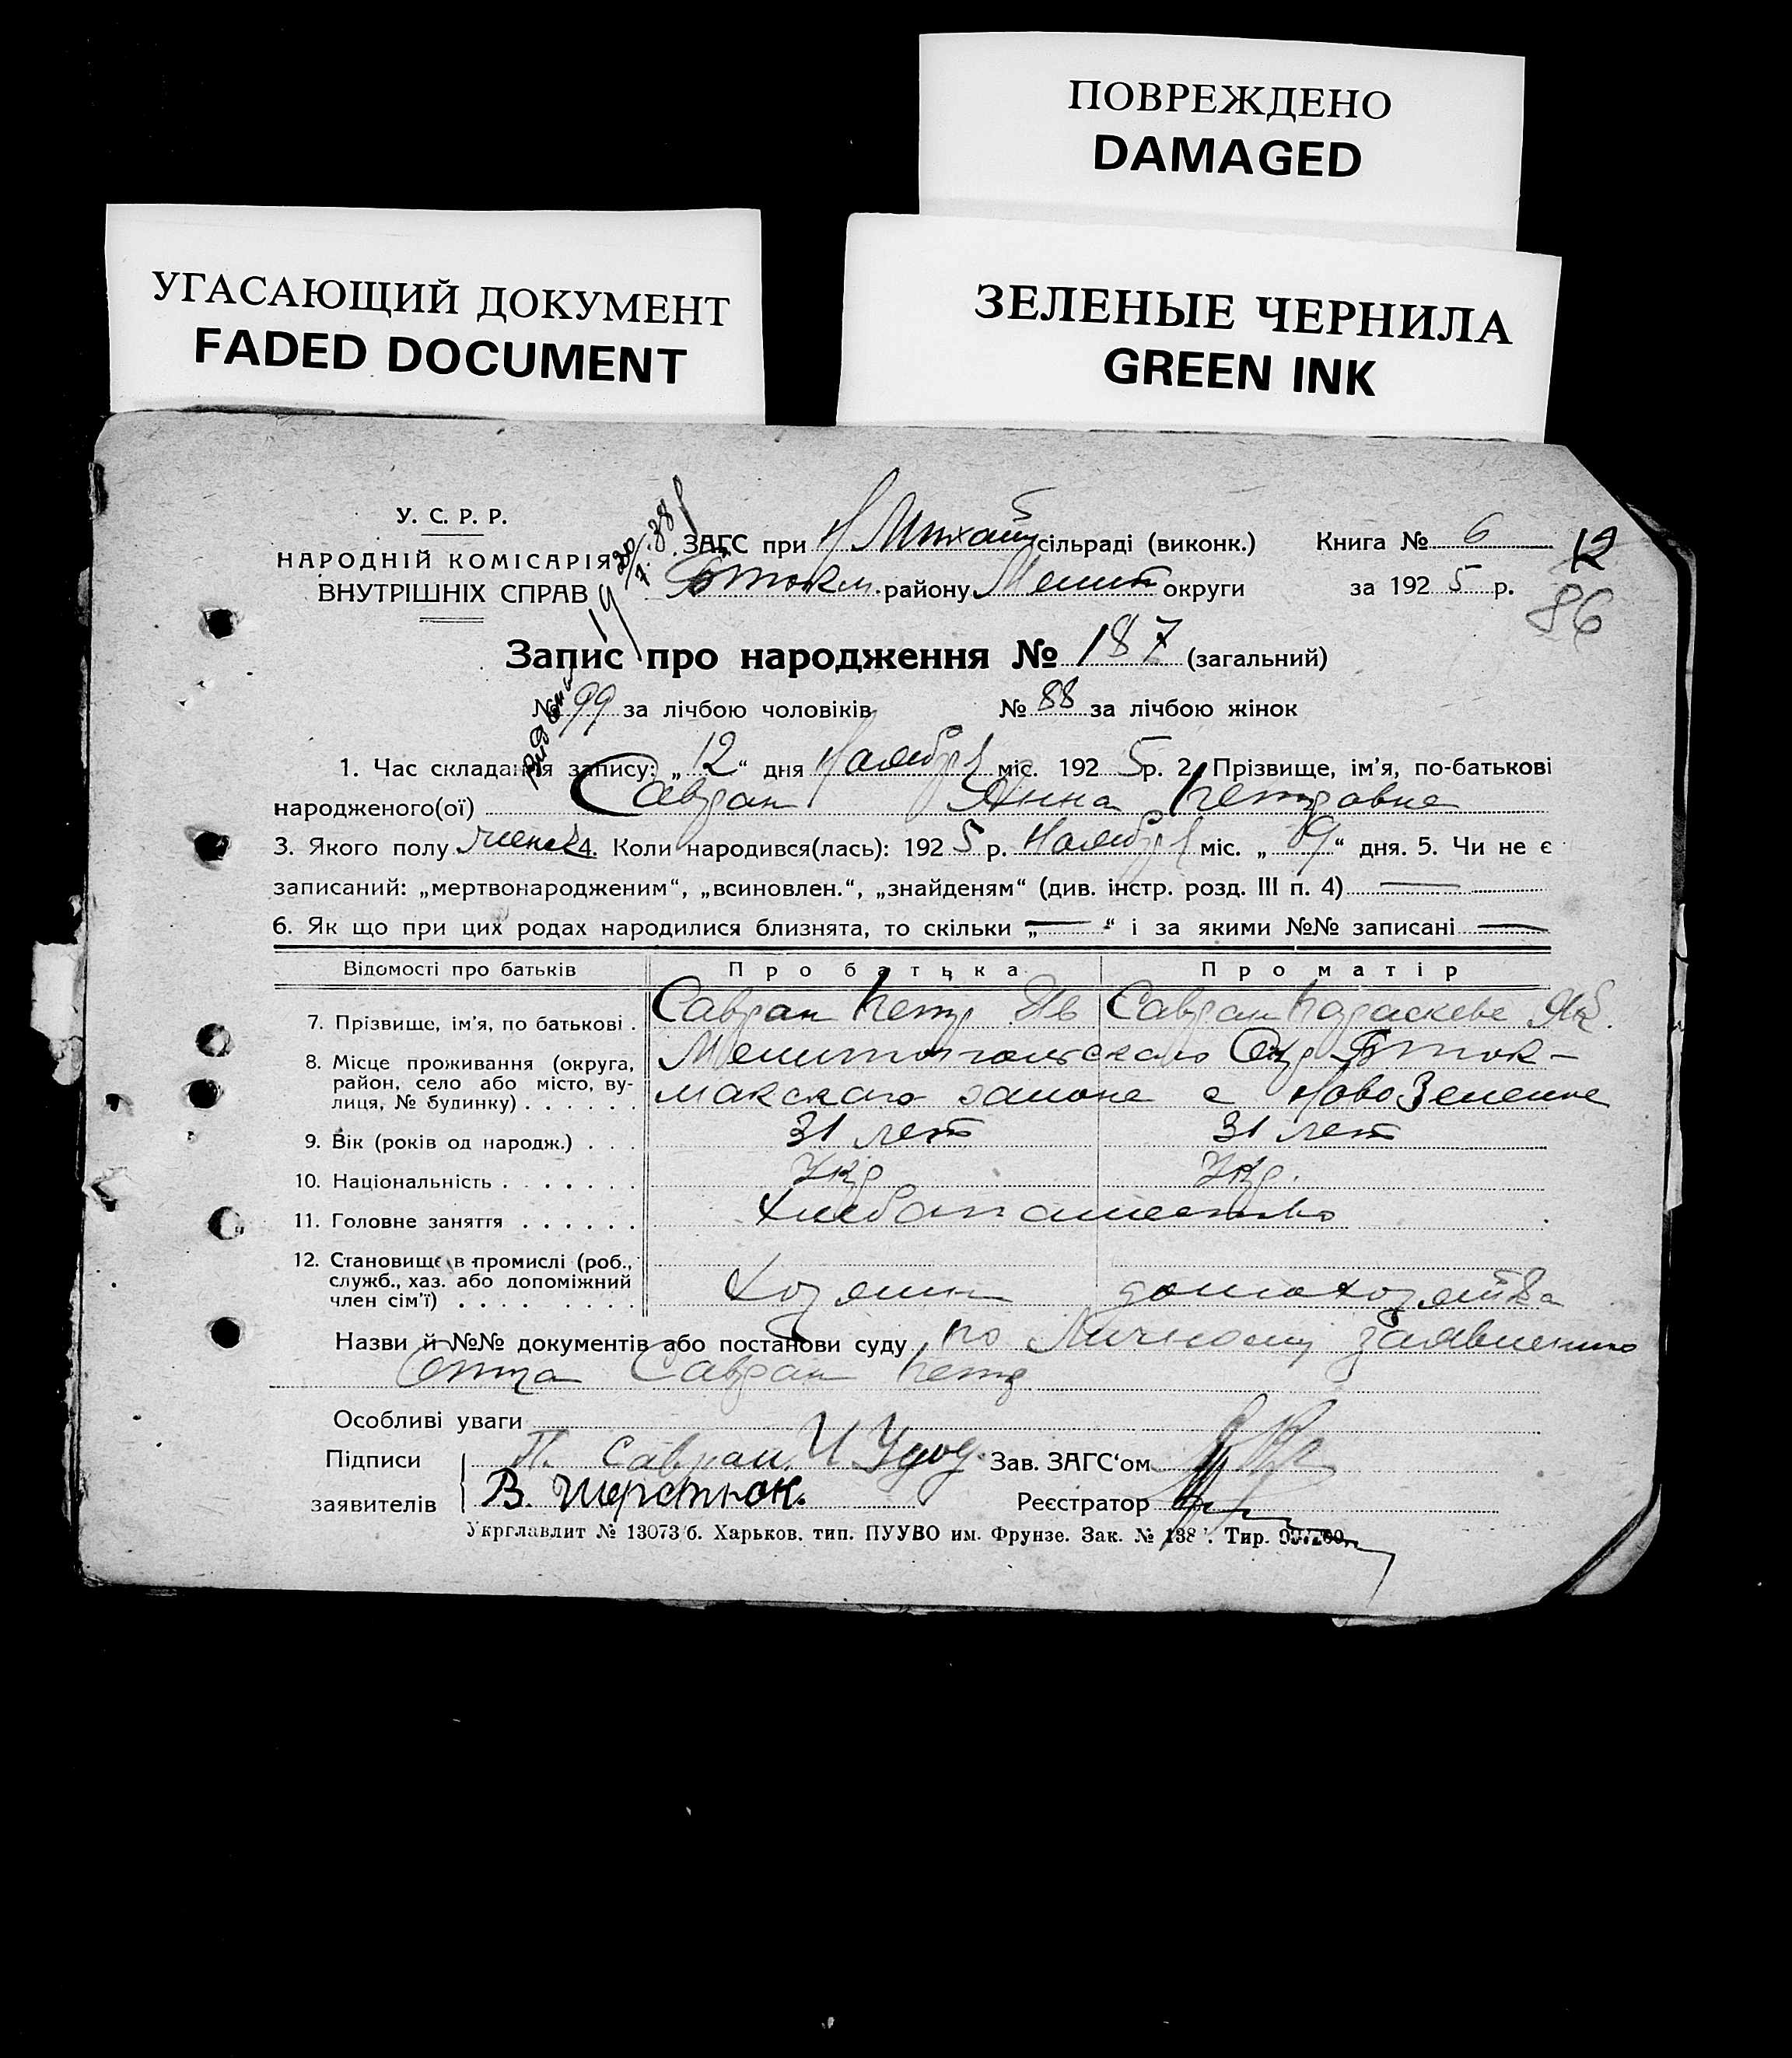 ПОВРЕЖДЕНО
DAMAGED
УГАСАЮЩИЙ ДОКУМЕНТ
FADED DOCUMENT
ЗЕЛЕНЫЕ ЧЕРНИЛА
GREEN INK
У. С. Р. Р.
НАРОДНІЙ КОМІСАРІЯ
ВНУТРІШНІХ СПРАВ
ЗАГС при Н Михай сільраді (виконк.) Книга № 6
Бток м. району Мелит округи за 1925 р.
12
86
Запис про народження № 187 (загальний)
№ 99 за лічбою чоловіків № 88 за лічбою жінок
1. Час складання запису: „12“ дня Ноября міс. 1925 р. 2. Прізвище, ім'я, по-батькові
народженого(ої) Савран Анна Петровна
3. Якого полу женск 4. Коли народився(лась): 1925 р. Ноября міс. „9“ дня. 5. Чи не є
записаний: „мертвонародженим“, „всиновлен.“, „знайденям“ (див. інстр. розд. III п. 4) —
6. Як що при цих родах народилися близнята, то скільки „—“ і за якими №№ записані —
Відомості про батьків Про батька Про матір
7. Прізвище, ім'я, по батькові . Савран Петр Яв Савран Параскева Як.
8. Місце проживання (округа, район, село або місто, вулиця, № будинку) . . . . . . Мелитопольского Окр Бток-
макского района с Ново Зеленое
9. Вік (років од народж.) . . . 31 лет 31 лет
10. Національність . . . . . . . Укр Укр.
11. Головне заняття . . . . . . Хлебопашество
12. Становище в промислі (роб., служб., хаз. або допоміжний член сім'ї) . . . . . . . . Хозяин домохозяйка
Назви й №№ документів або постанови суду по Личному заявлению
Отца Савран Петр
Особливі уваги
Підписи П. Савран И Удод Зав. ЗАГС'ом
заявителів В. Шерстюк. Реєстратор
Укрглавлит № 13073/б. Харьков, тип. ПУУВО им. Фрунзе. Зак. № 138 . Тир.